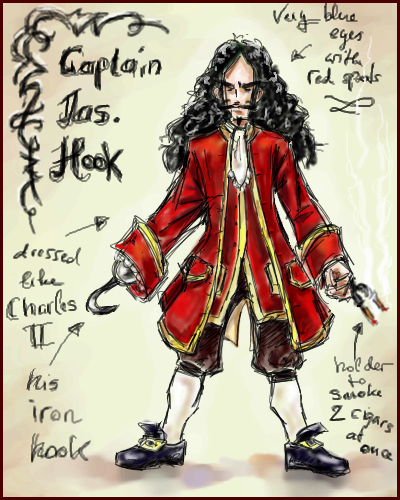 Captain
Jas.
Hook
Very blue
eyes
with
red spots
dressed
like
Charles
II
his
iron
hook
holder
to
smoke
2 cigars
at once